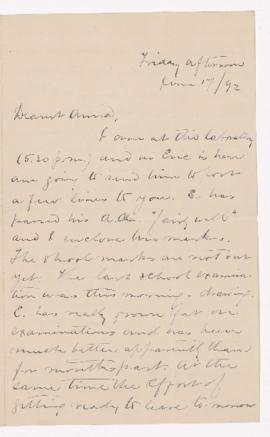 Friday afternoon
June 17/92
Dearest Anna,
I am at the laboratory
(5.30 p.m.) and as Eric is here
am going to send him to post
a few lines to you. E. has
passed his A.A. "fairly well"
and I enclose his marks.
The school marks are not out
yet. The last school examina-
tion was this morning - drawing.
E. has really grown fat on
examinations and has been
much better apparently than
for months past. At the
same time the effort of
getting ready to leave to-morrow